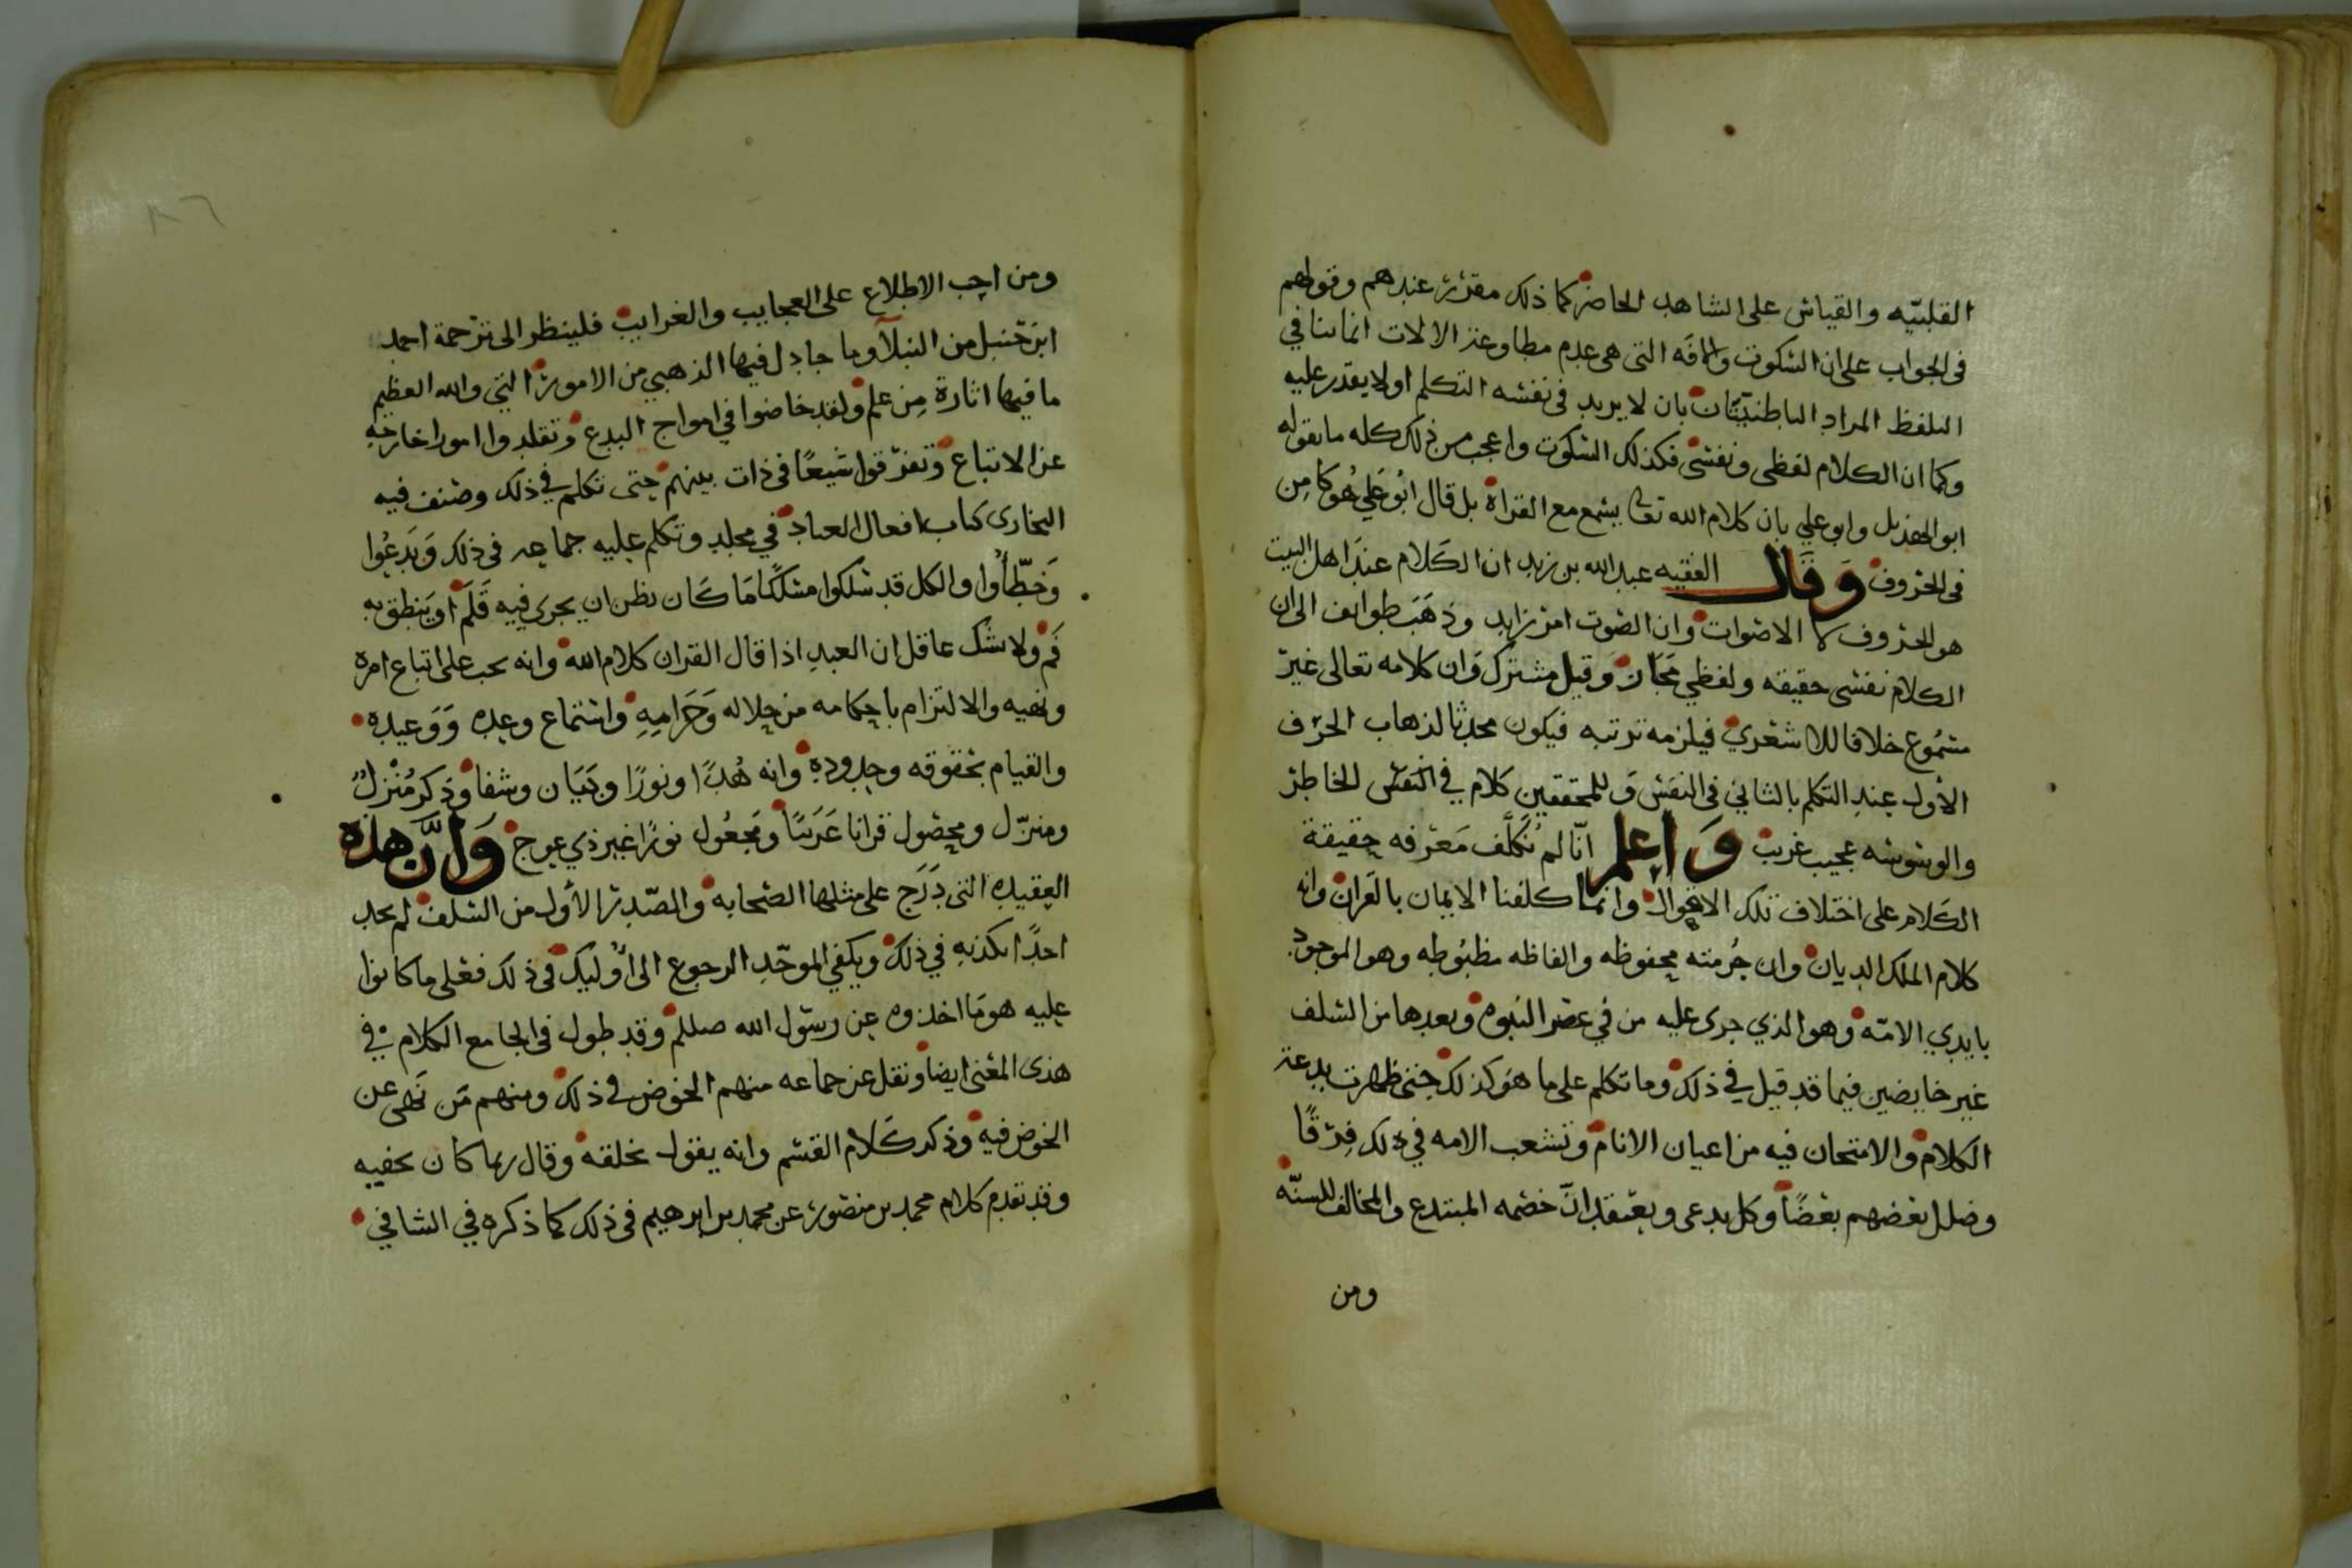 القلبيّه والقياس على الشاهد الحاضر كما ذلك مقرر عندهم وقولهم
في الجواب على ان السكوت والافه التي هي عدم مطاوعة الالات انما ينافي
التلفظ المراد الباطنيّتان بان لا يريد في نفسه التكلم او لا يقدر عليه
وكما ان الكلام لفظي ونفسي فكذلك السكوت واعجب من ذلك كله ما يقوله
ابو الهذيل وابو علي بان كلام الله تعالى يسمع مع القراة بل قال ابُو عَلي هُو كامِن
في الحروف وَقَال الفقيه عبد الله بن زيد ان الكَلام عندَ اهل البيت
هو الحروف لا الاصوات وان الصوت امر زايد وذهَبَ طوايف الى ان
الكلام نفسي حقيقه ولفظي مَجَاز وَقيل مشترك وَان كلامه تعالى غير
مسمُوع خلافا للاشعري فيلزمه ترتبه فيكون محدثا لذهاب الحرف
الأول عند التكلم بالثاني في النفس وَللمحققين كلام في النفس الخاطر
والوسوسه عجيب غريب وَاعلم انّا لم نُكَلَّف مَعرفه حقيقة
الكَلام على اختلاف تلك الاقوال وانما كلفنا الايمان بالقران وانه
كلام الملك الديان وان حُرمته محفوظه والفاظه مظبُوطه وهو الموجود
بايدي الامّه وهو الذي جرى عليه من في عصر النبوه وبعدها من السلف
غير خايضين فيما قد قيل في ذلك وما تكلم على ما هو كذلك حتى ظهرت بدعة
الكلام والامتحان فيه من اعيان الانام وتشعب الامه في ذلك فِرقًا
وضلل بعضهم بعضًا وكل يدعى ويعتقد انَّ خصمه المبتدع والمخالف للسنّه
ومن
ومن احب الاطلاع على العجايب والغرايب فلينظر الى ترجمة احمد
ابن حَنبل من النبلآ وما جادل فيها الذهبي من الامور التي والله العظيم
ما فيها اثارة مِن علم ولقد خاضوا في امواج البدع وتقلدوا امورا خارجه
عن الاتباع وتفرّقوا شيعًا في ذات بينهم حتى تكلم في ذلك وصنف فيه
البخاري كتاب افعال العباد في مجلد وتكلم عليه جماعه في ذلك وَبَدعُوا
وَخطّأُوا والكل قد سلكوا مسلكًا مَا كَان يظن ان يجري فيه قَلَم او يَنطق به
فَم ولا يشك عاقل ان العبد اذا قال القران كلام الله وانه يجب على اتباع امره
ونهيه والالتزام باحكامه من حلاله وَحَرَامِهِ واستماع وعده وَوَعيده
والقيام بحقوقه وحدوده وانه هُدًا ونورًا وبَيَان وشفا وَذكر مُنْزلٌ
ومنزّل ومحصُول قرانا عَرَبيًا وَمَجعُول نورًا غير ذي عوج وَأنَّ هذه
العقيده التي دَرَج على مثلها الصحابه والصّدر الأول من السلف لم يجد
احدًا يكذبه في ذلك ويكفي الموحّد الرجوع الى اؤليك في ذلك فعلى ما كانوا
عليه هو مَا اخذوه عن رسول الله صللم وقد طول في الجامع الكلام في
هذى المعنى ايضا ونقل عن جماعه منهم الخوض في ذلك ومنهم مَن نَهى عن
الخوض فيه وذكر كَلام القسم وانه يقول بخلقه وقال ربما كان يخفيه
وقد تقدم كلام محمد بن منصور عن محمد بن ابرهيم في ذلك كما ذكره في الشافي